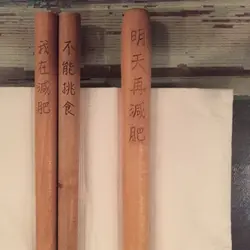 我在減肥
不能挑食
明天再減肥